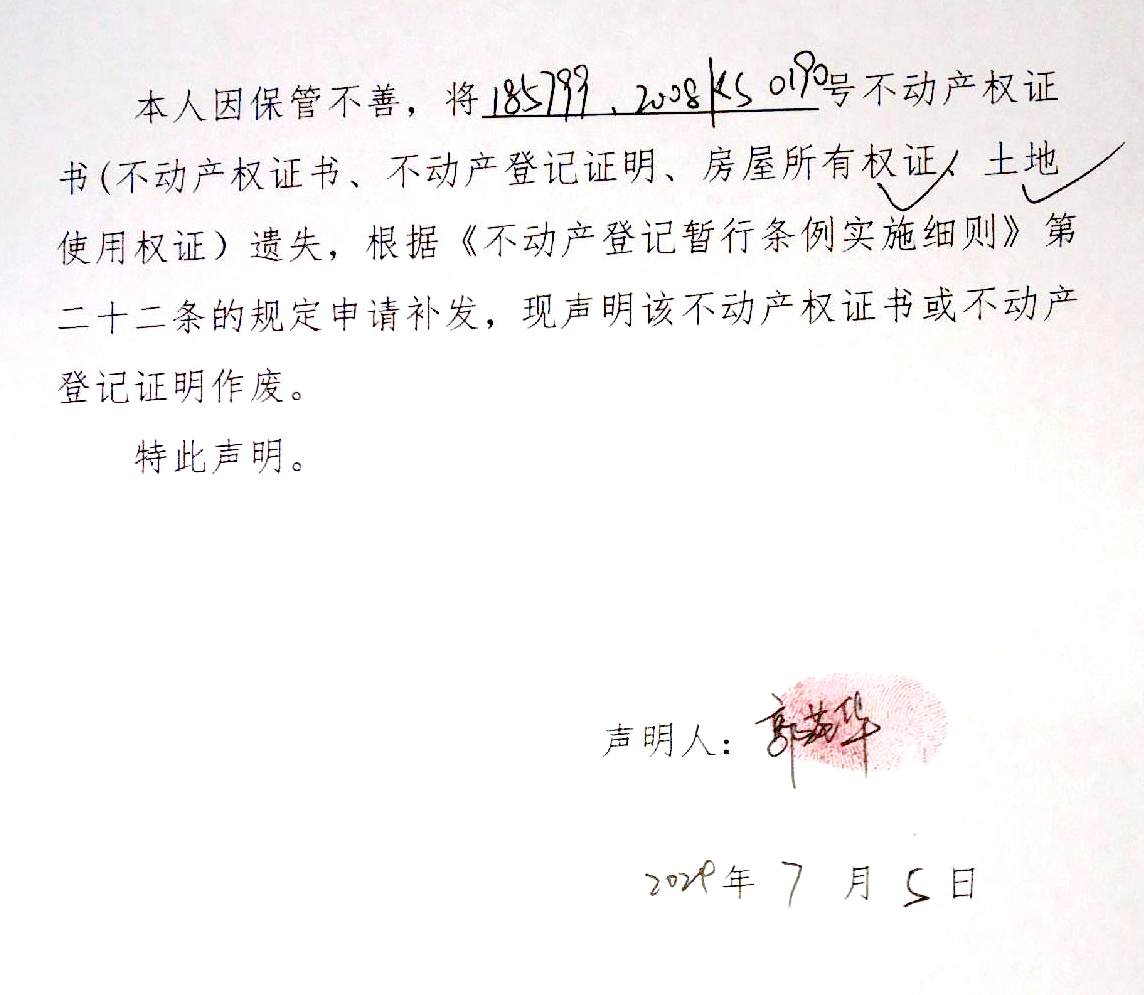 本人因保管不善，将185799、2008KS0190号不动产权证
书(不动产权证书、不动产登记证明、房屋所有权证、土地
使用权证）遗失，根据《不动产登记暂行条例实施细则》第
二十二条的规定申请补发，现声明该不动产权证书或不动产
登记证明作废。
特此声明。
声明人：郭茂华
2024年7月5日